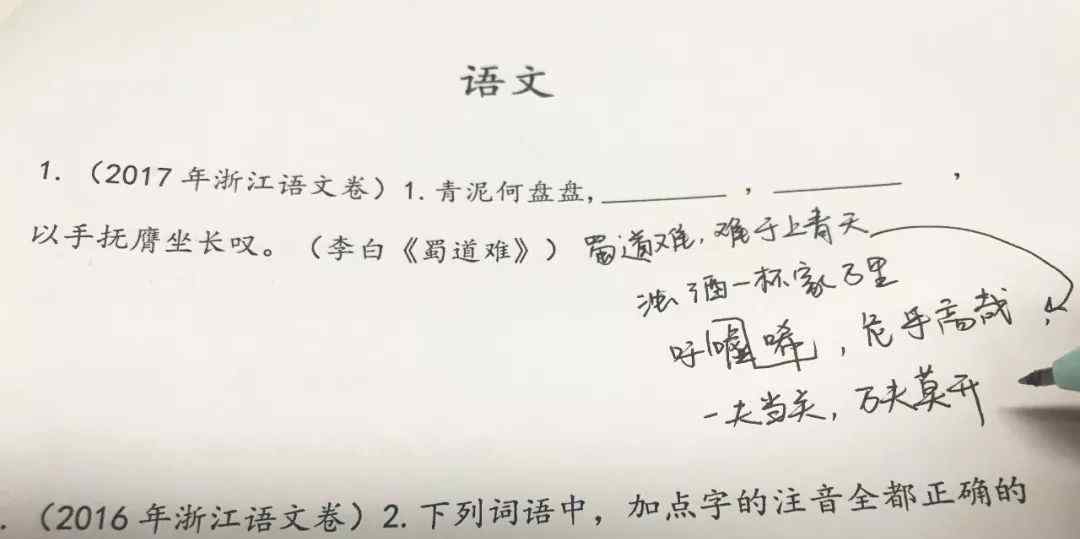 语文
1. （2017 年浙江语文卷）1. 青泥何盘盘，________，________，
以手抚膺坐长叹。（李白《蜀道难》） 蜀道难，难于上青天
浊酒一杯家万里
吁嘘唏，危乎高哉
一夫当关，万夫莫开
. （2016 年浙江语文卷）2. 下列词语中，加点字的注音全都正确的